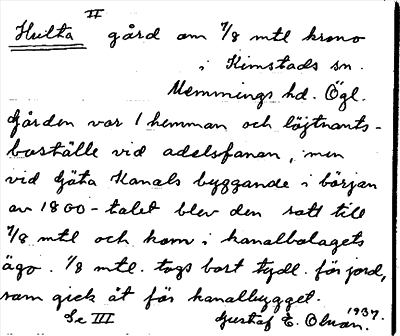 Hulta II gård om 7/8 mtl krono
i Kimstads sn.
Memmings hd. Ögl.
Gården var 1 hemman och löjtnants-
boställe vid adelsfanan, men
vid Göta Kanals byggande i början
av 1800-talet blev den satt till
7/8 mtl och kom i kanalbolagets
ägo. 1/8 mtl. togs bort tydl. för jord,
som gick åt för kanalbygget.
Se III Gustaf E. Olsson. 1937.